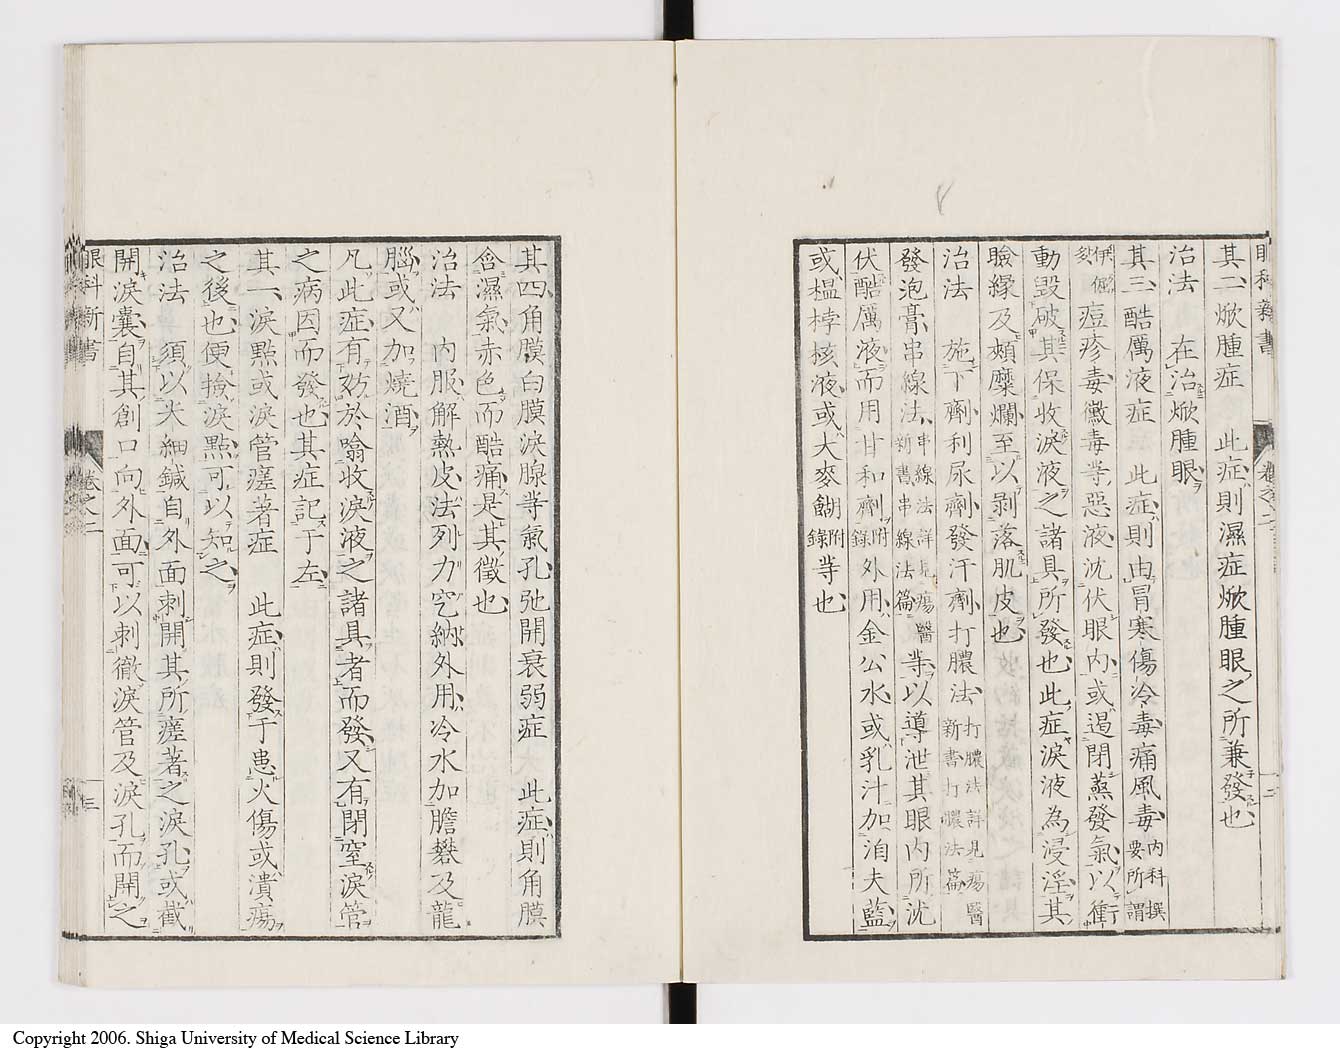 其二、焮腫症　此症則濕症焮腫眼之所兼發也
治法　在治焮腫眼
其三、酷厲液症　此症則由冒寒傷冷毒痛風毒內科撰要所謂
伊佝㱾痘疹毒黴毒等惡液沈伏眼內或遏閉蒸發氣以衝
動毀破其保收淚液之諸具所發也此症淚液為浸淫其
瞼緣及頰糜爛至以剥落肌皮也
治法　施下劑利尿劑發汗劑打膿法打膿法詳見瘍醫新書打膿法篇
發泡膏串線法串線法詳見瘍醫新書串線法篇等以導泄其眼內所沈
伏酷厲液而用甘和劑附錄外用金公水或乳汁加洎夫藍
或榲桲核液或大麥餬附錄等也
眼科新書
卷之二
二
其四角膜白膜淚腺等氣孔弛開衰弱症　此症則角膜
含濕氣赤色而酷痛是其徵也
治法　內服解熱皮法列力乞納外用冷水加膽礬及龍
腦或又加燒酒
凡此症有妨於噏收淚液之諸具者而發又有閉窒淚管
之病因而發也其症記于左
其一、淚點或淚管瘥著症　此症則發于患火傷或潰瘍
之後也便撿淚點可以知之
治法　須以尖細鍼自外面刺開其所瘥著之淚孔或截
開淚囊自其創口向外面可以刺徹淚管及淚孔而開之
眼科新書
卷之二
三
Copyright 2006. Shiga University of Medical Science Library